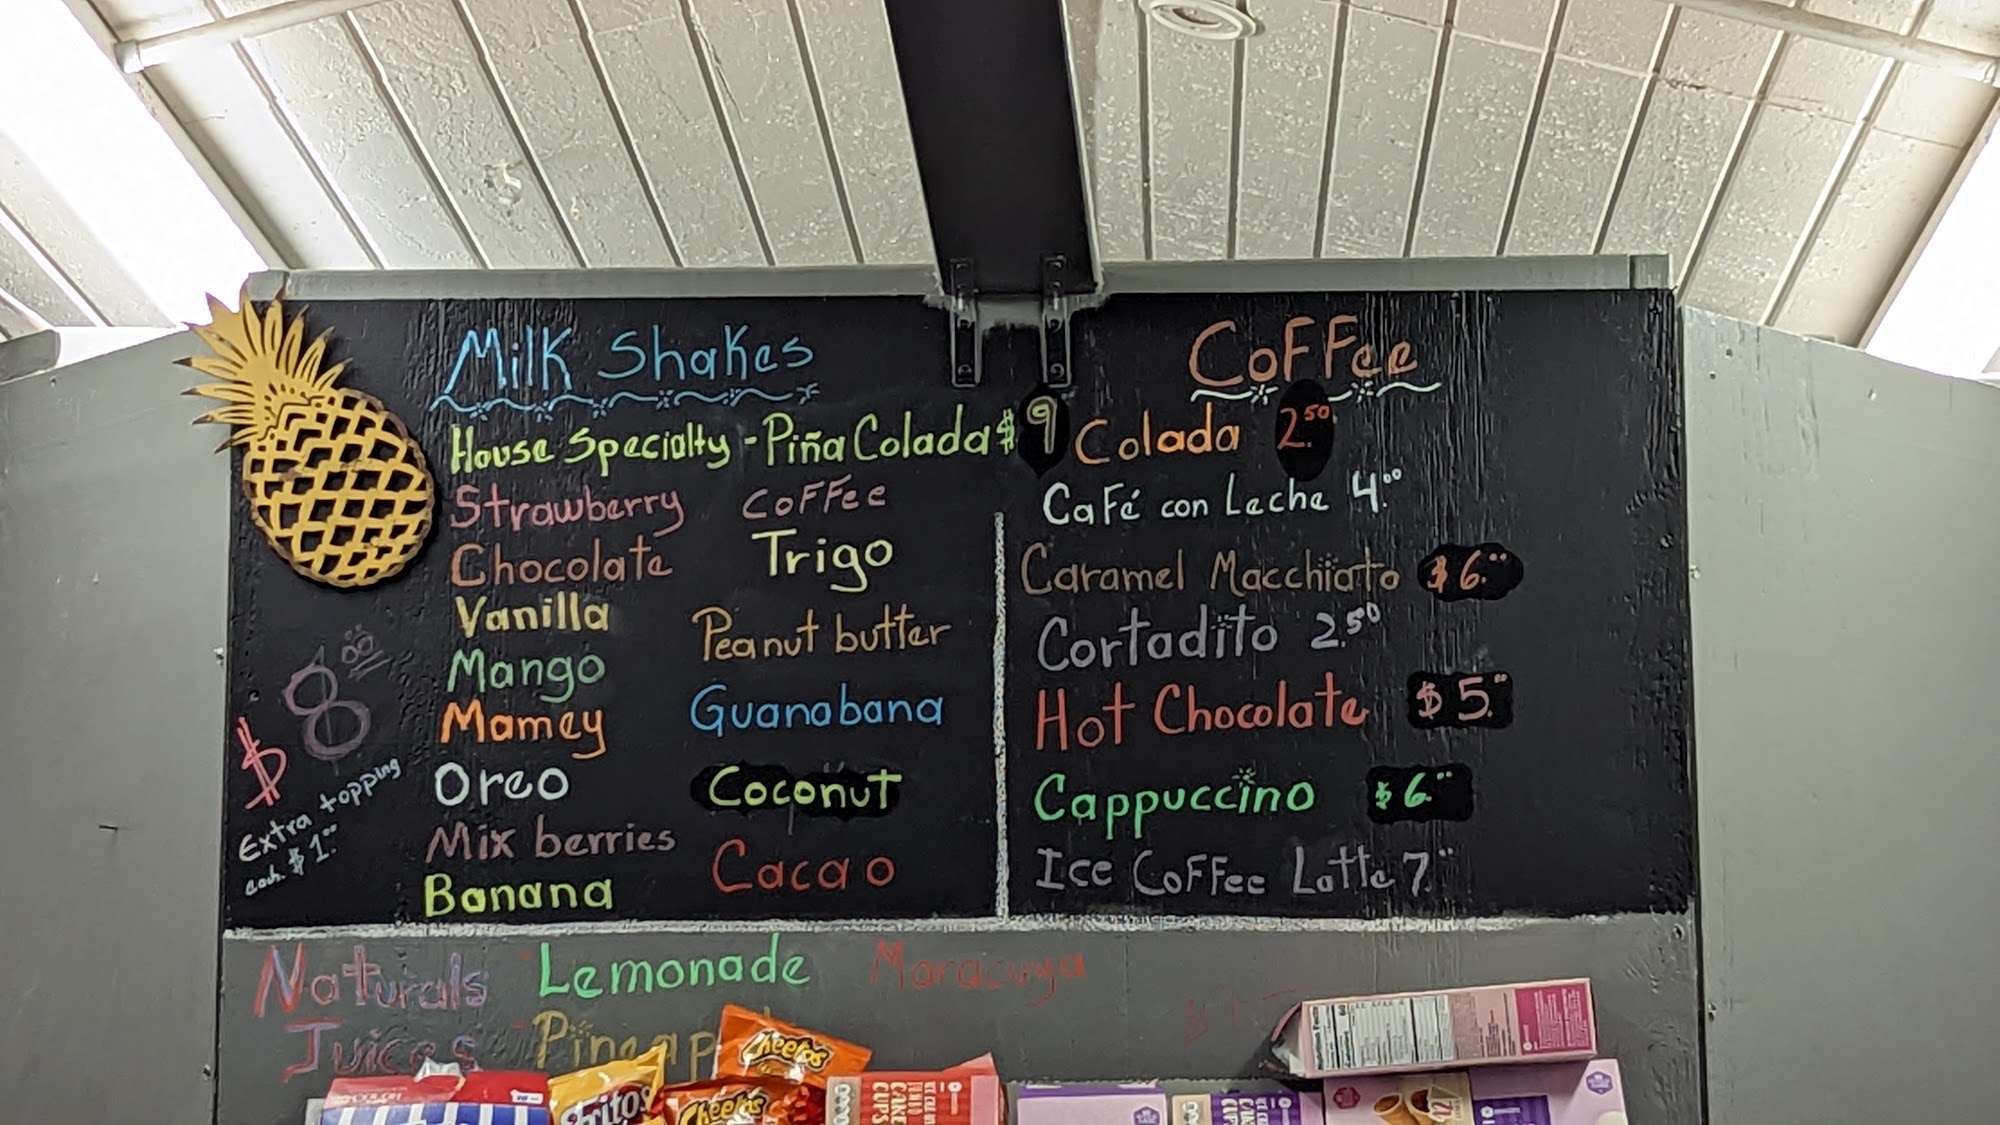 Milk Shakes
House Specialty - Piña Colada $ 9
Strawberry
Chocolate
Vanilla
Mango
Mamey
Oreo
Mix berries
Banana
Coffee
Trigo
Peanut butter
Guanabana
Coconut
Cacao
$ 8.00
Extra topping
each. $ 1.00
Coffee
Colada 2.50
Café con Leche 4.00
Caramel Macchiato $ 6.00
Cortadito 2.50
Hot Chocolate $ 5.00
Cappuccino $ 6.00
Ice Coffee Latte 7.00
Naturals Juices
Lemonade
Maracuya
Cheetos
Cheetos
ICE CREAM
CAKE
CUPS